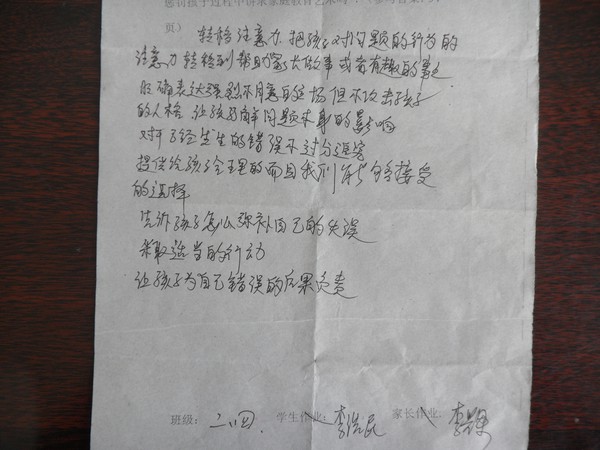 惩罚孩子过程中讲求家庭教育艺术吗
页） 转移注意力，把孩子对问题的行为的
注意力转移到帮助家长做事或者有趣的事
明确表达强烈不同意的立场但不攻击孩子
的人格 让孩子了解问题本身的影响
对于已经发生的错误不过分追究
提供给孩子合理的而且我们能够接受
的选择
告诉孩子怎么弥补自己的失误
采取适当的行动
让孩子为自己错误的后果负责
班级：二．四． 学生作业：李浩 家长作业：李